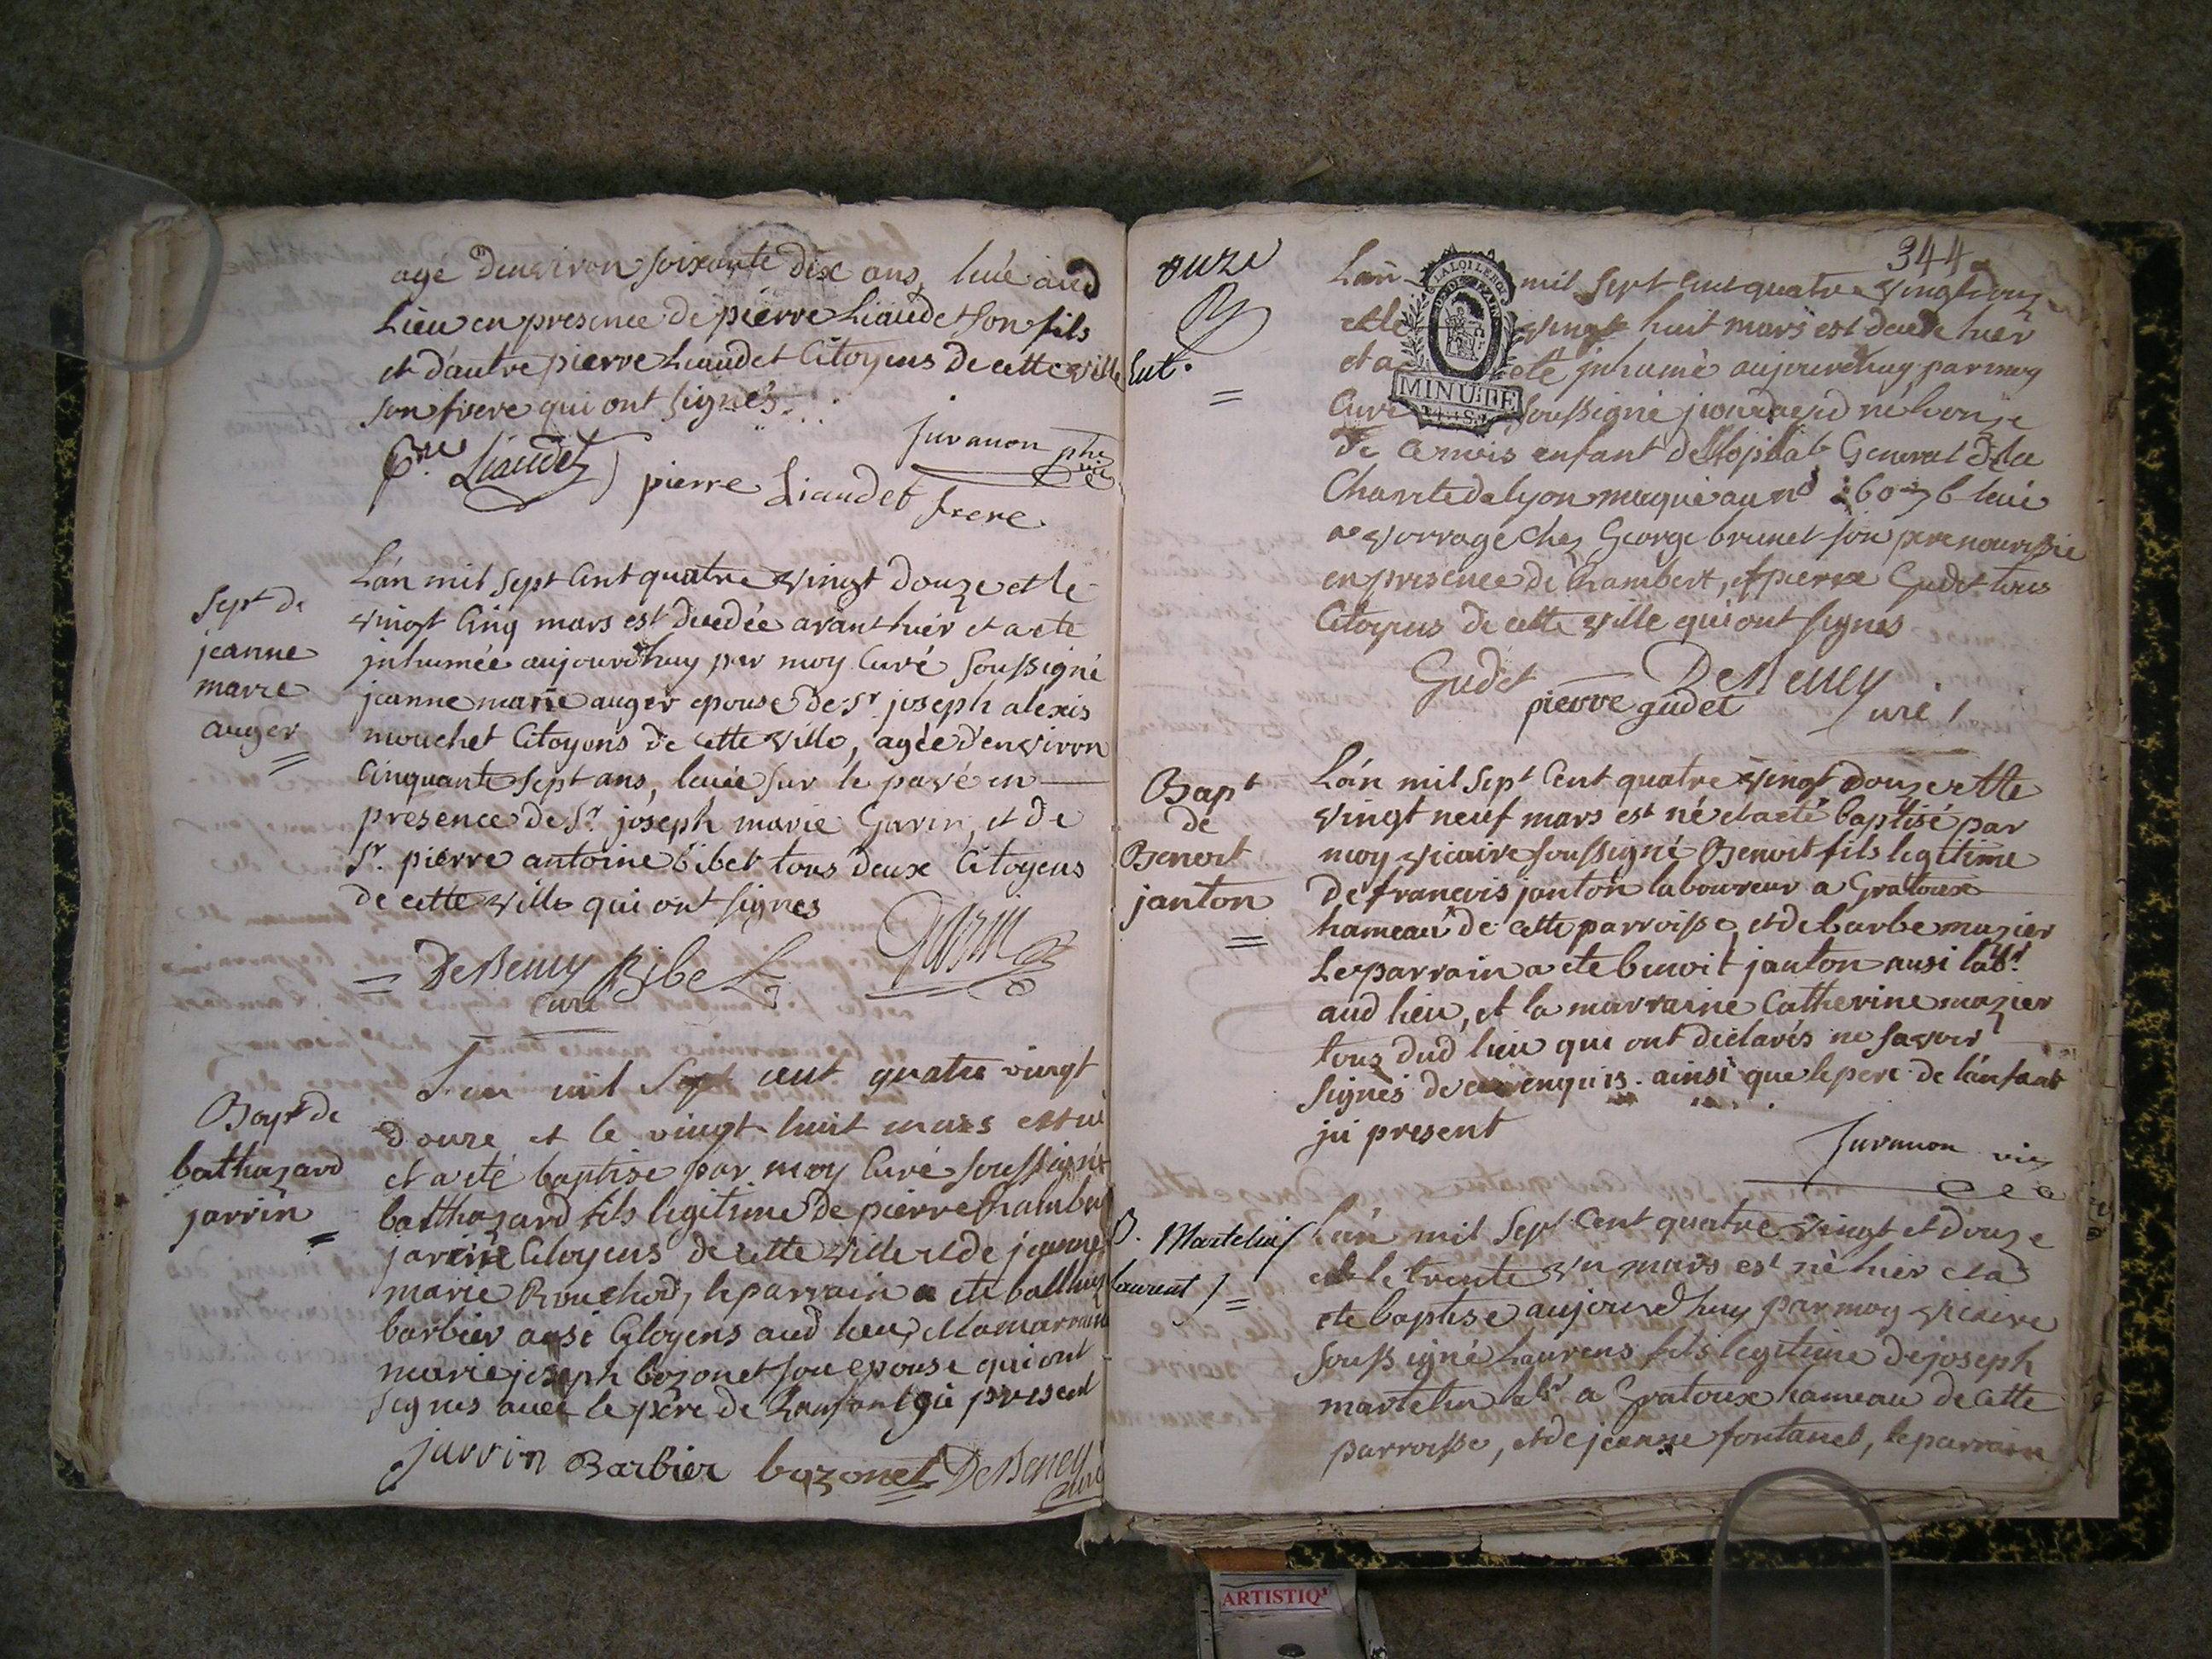 agé denviron soixante dix ans, levé aud
Lieu en presence de pierre Liaudet son fils
et d'autre pierre Liaudet Citoyens de cette ville
son frere qui ont signés
Juvanon
Liaudet
pierre Liaudet frere
Sept de
jeanne
marie
auger
L'an mil sept Cent quatre vingt douze et le
vingt Cinq mars est decedée avant hier et a ete
inhumée aujourdhuy par moy Curé soussigné
jeanne marie auger epouse de Sr joseph alexis
mouchet Citoyens de cette ville, agée d'environ
Cinquante sept ans, levée sur le pavé en
presence de Sr. joseph marie Garin, et de
Sr. pierre antoine bibet tous deux Citoyens
de cette ville qui ont signes
DeBeney Bibet Garin
Curé
Bapt de
balthazard
jarrin
L'an mil Sept cent quatre vingt
douze et le vingt huit mars est né
et a eté baptise par moy Curé soussigné
balthazard fils legitime de pierre
jarrin Citoyens de cette ville et de jeanne
marie le parrain a ete
barbier aussi Citoyens aud lieu, et la marraine
marie joseph bozonet son epouse qui ont
signes avec le père de present
jarrin Barbier bozonet DeBeney
curé
344
onze
Ent.
L'an mil sept Cent quatre vingt douze
et le vingt huit mars est decede hier
et a eté inhumé aujourdhuy par moy
Curé soussigné né
de ce mois enfant de Lhopital General de la
Charite de lyon au no levé
chez George brunet son pere nourissie
en presence de Chambert, et pierre Gudet tous
Citoyens de cette ville qui ont signes
Gudet DeBeney
pierre gudet curé
LA LOI LE ROI
MINUTE
Bapt
de
Benoit
janton
L'an mil sept Cent quatre vingt douze et le
vingt neuf mars est né et a eté baptisé par
moy vicaire soussigné Benoit fils legitime
de francois janton laboureur a Gratoux
hameau de cette parroisse, et de barbe mazier
Le parrain a ete benoit janton ausi labr.
aud lieu, et la marraine Catherine mazier
tous dud lieu qui ont déclarés ne savoir
signés de ce enquis. ainsi que le pere de l'anfant
ici present
Juvanon vic
B. Martelin
Laurent
L'an mil sept Cent quatre vingt et douze
et le trente un mars est né hier et a
ete baptise aujourdhuy par moy vicaire
soussigné Laurens fils legitime de joseph
martelin labr a Gratoux hameau de cette
parroisse, et de jeanne fontanet, le parrain
ARTISTIQ